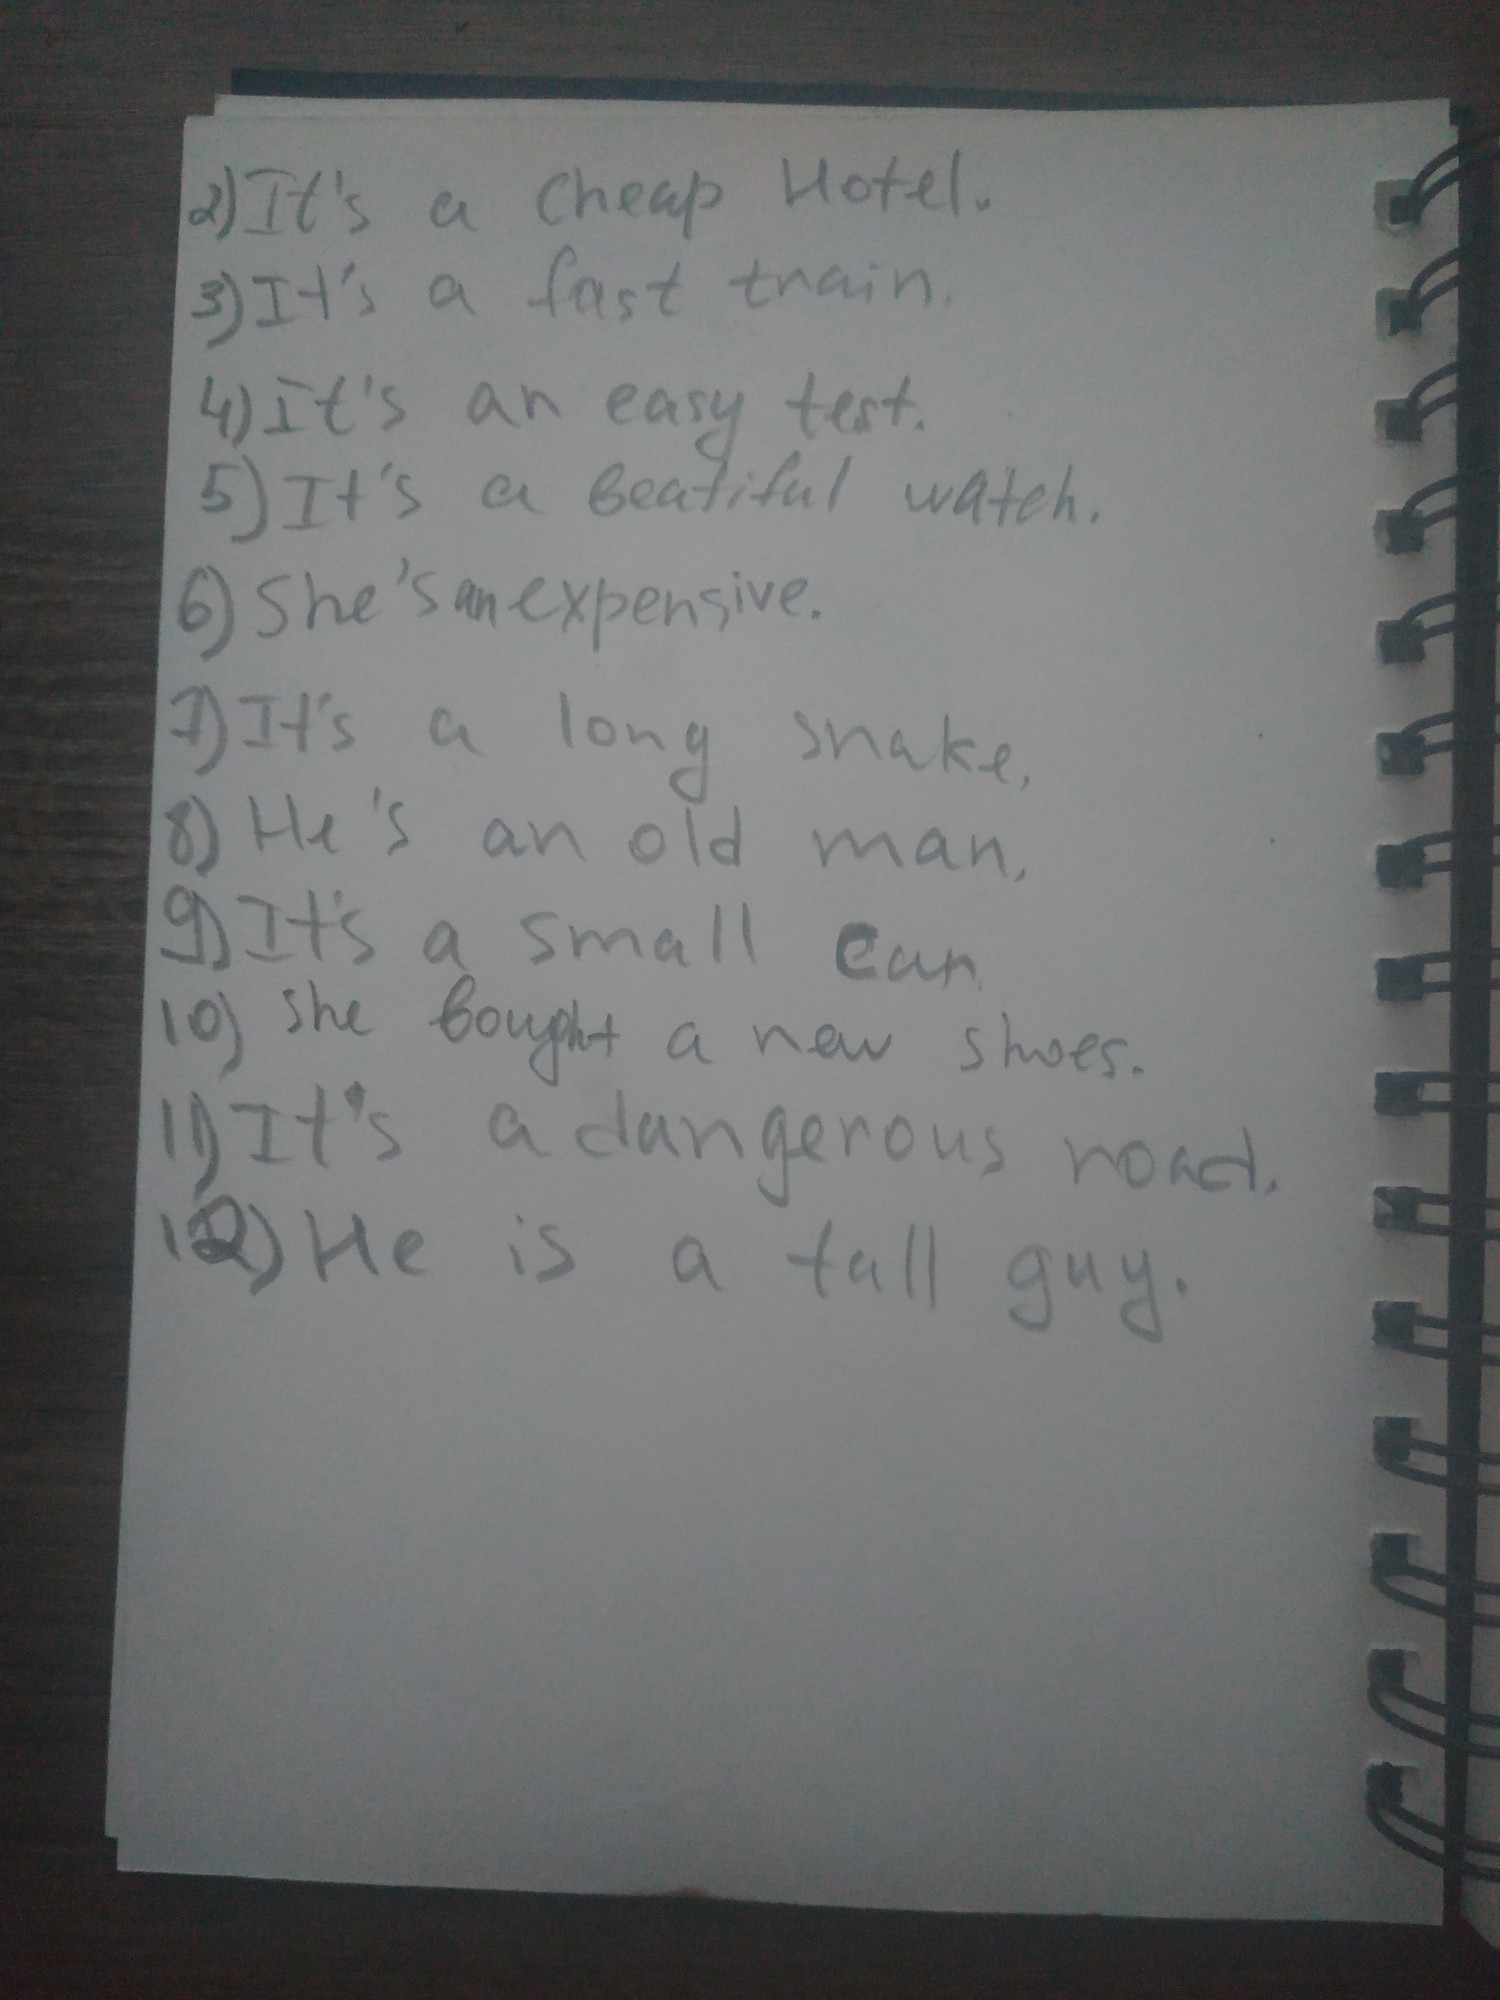 2) It's a cheap Hotel.
3) It's a fast train.
4) It's an easy test.
5) It's a beatiful watch.
6) She's an expensive.
7) It's a long snake,
8) He's an old man,
9) It's a small car
10) she bought a new shoes.
11) It's a dangerous road.
12) He is a tall guy.